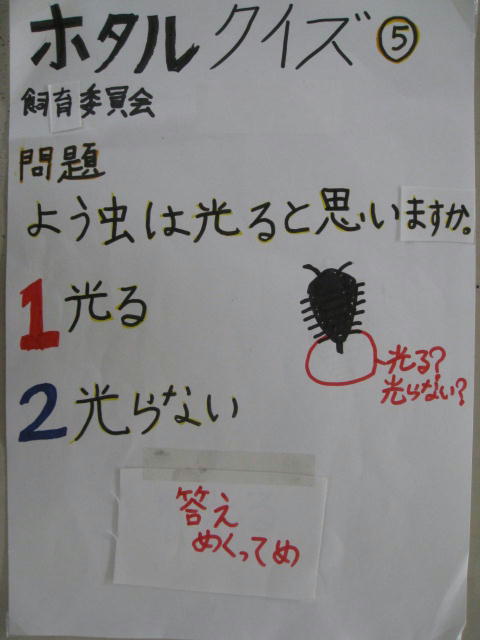 ホタルクイズ⑤
飼育委員会
問題
よう虫は光ると思いますか。
1 光る
光る?
光らない?
2 光らない
答え
めくってめ